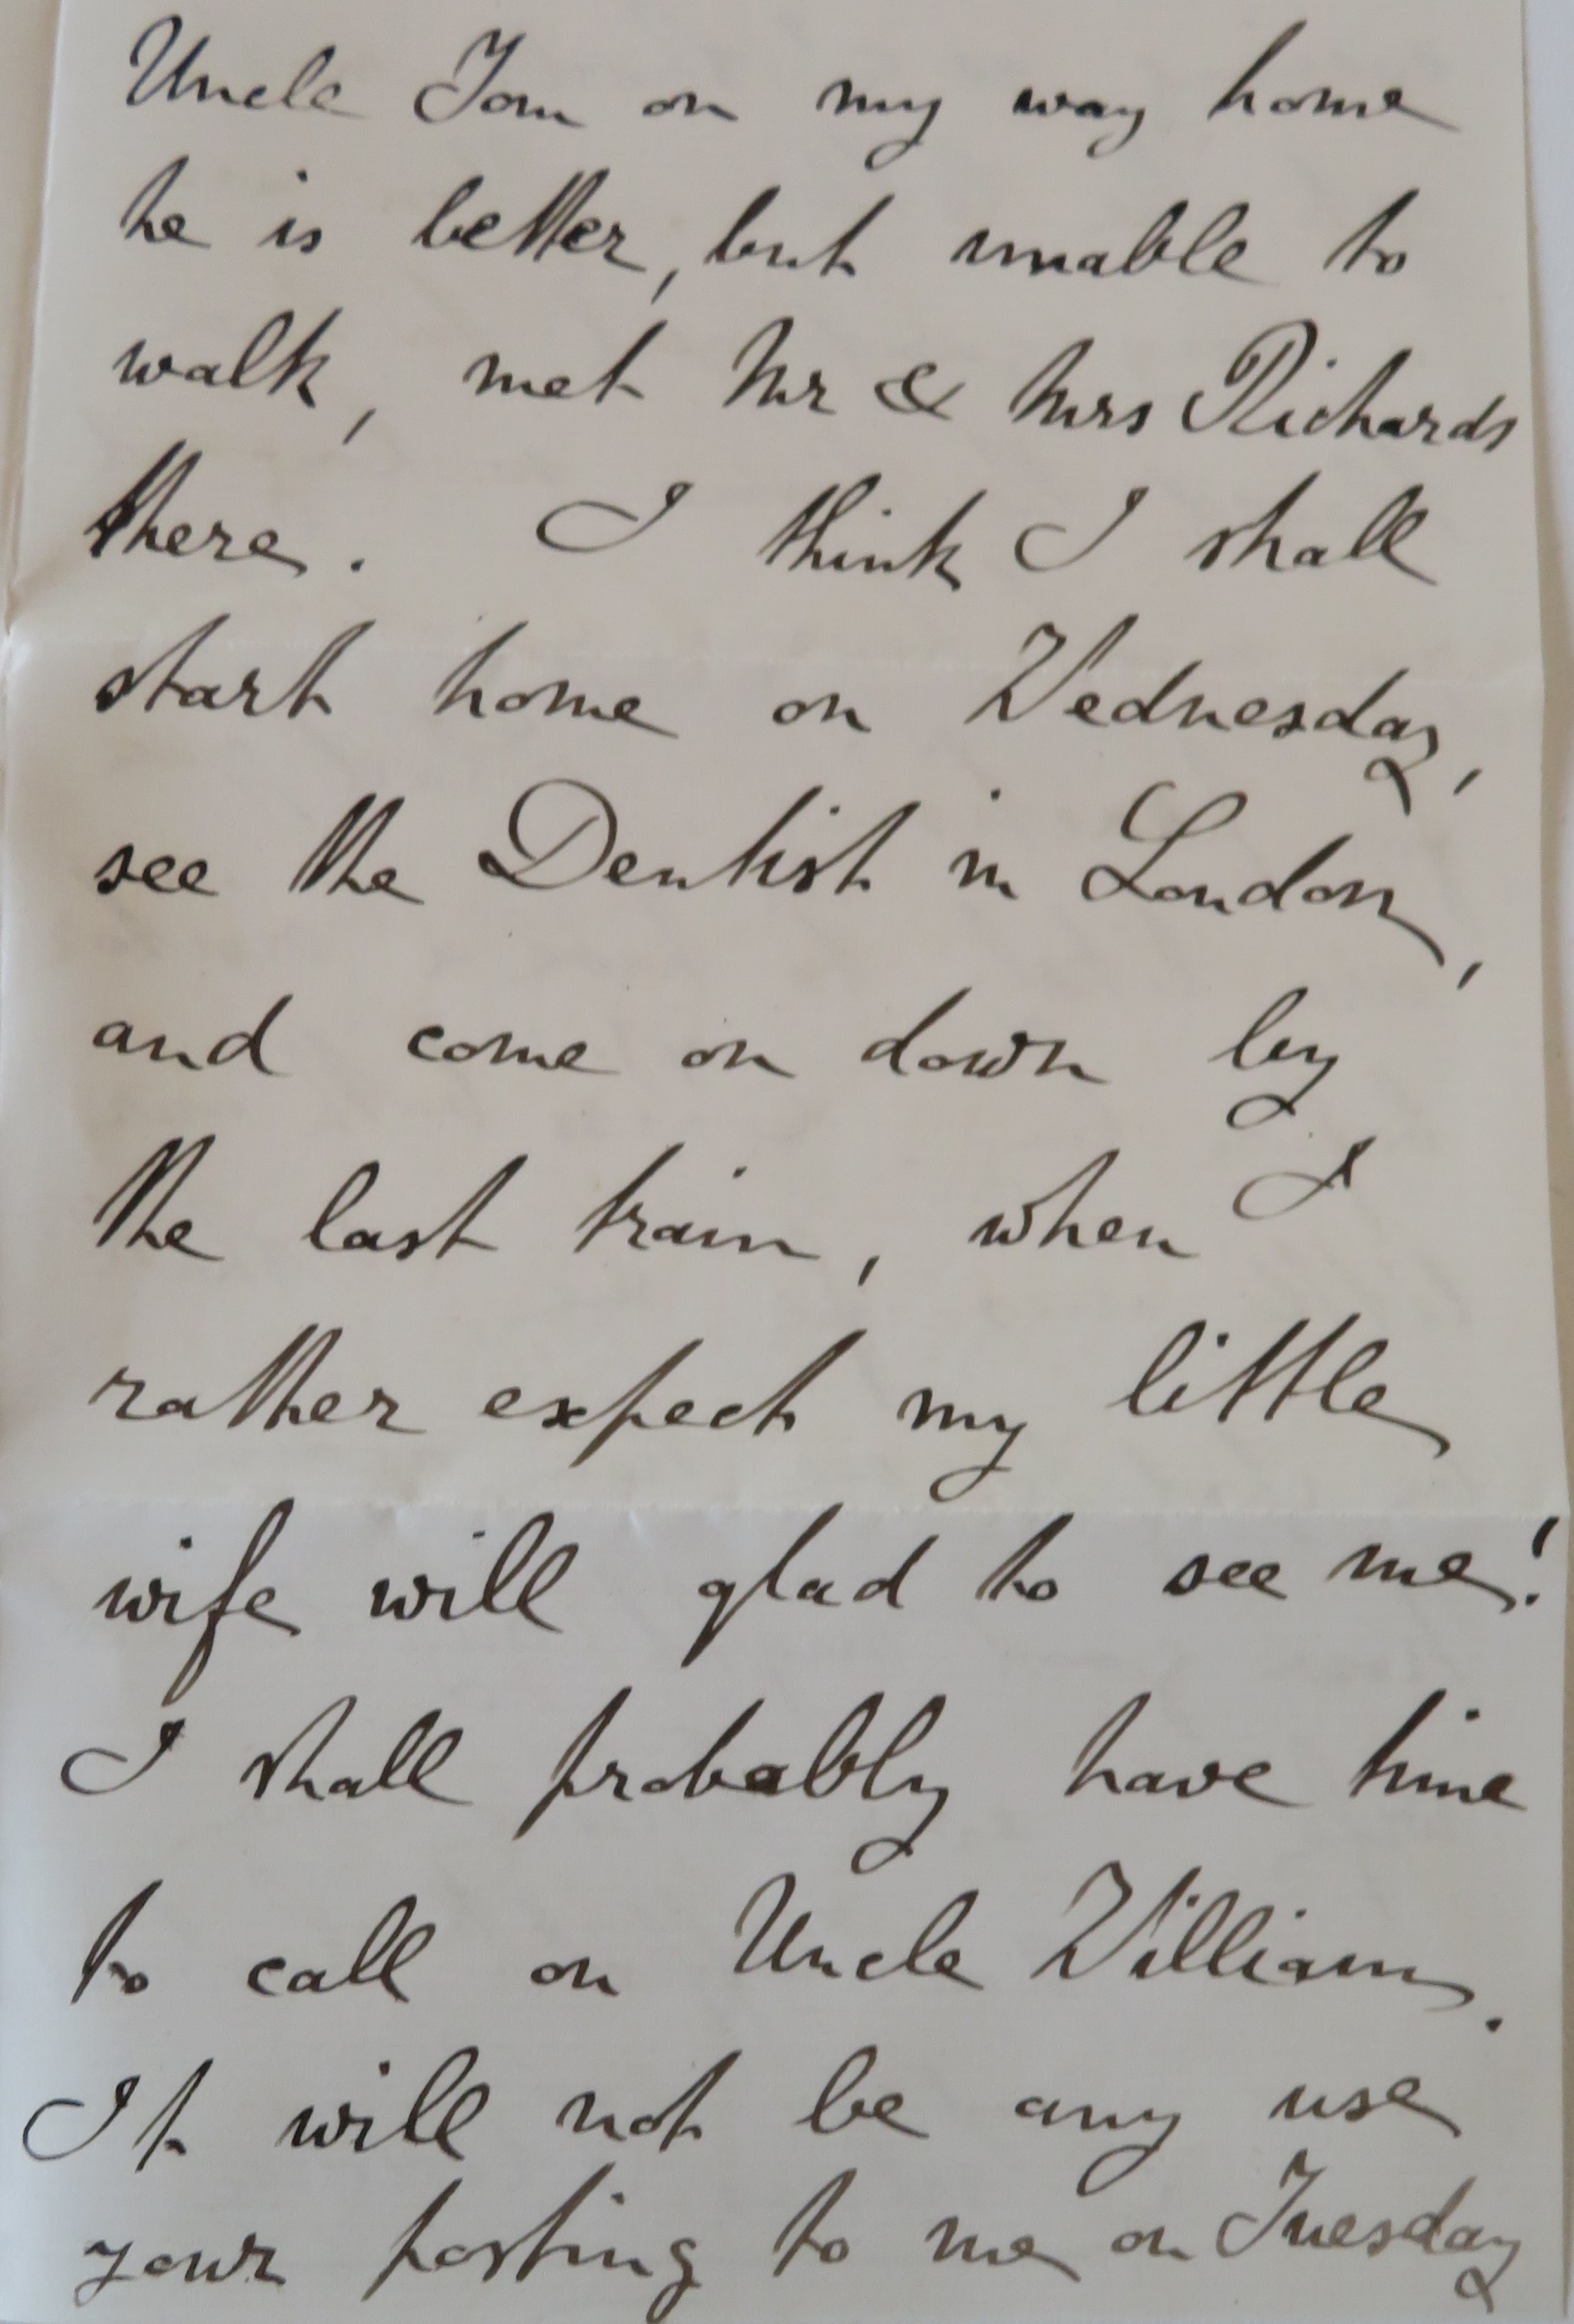 Uncle Tom on my way home
he is better, but unable to
walk, met Mr & Mrs Richards
there. I think I shall
start home on Wednesday,
see the Dentist in London,
and come on down by
the last train, when I
rather expect my little
wife will glad to see me!
I shall probably have time
to call on Uncle William.
It will not be any use
your posting to me on Tuesday